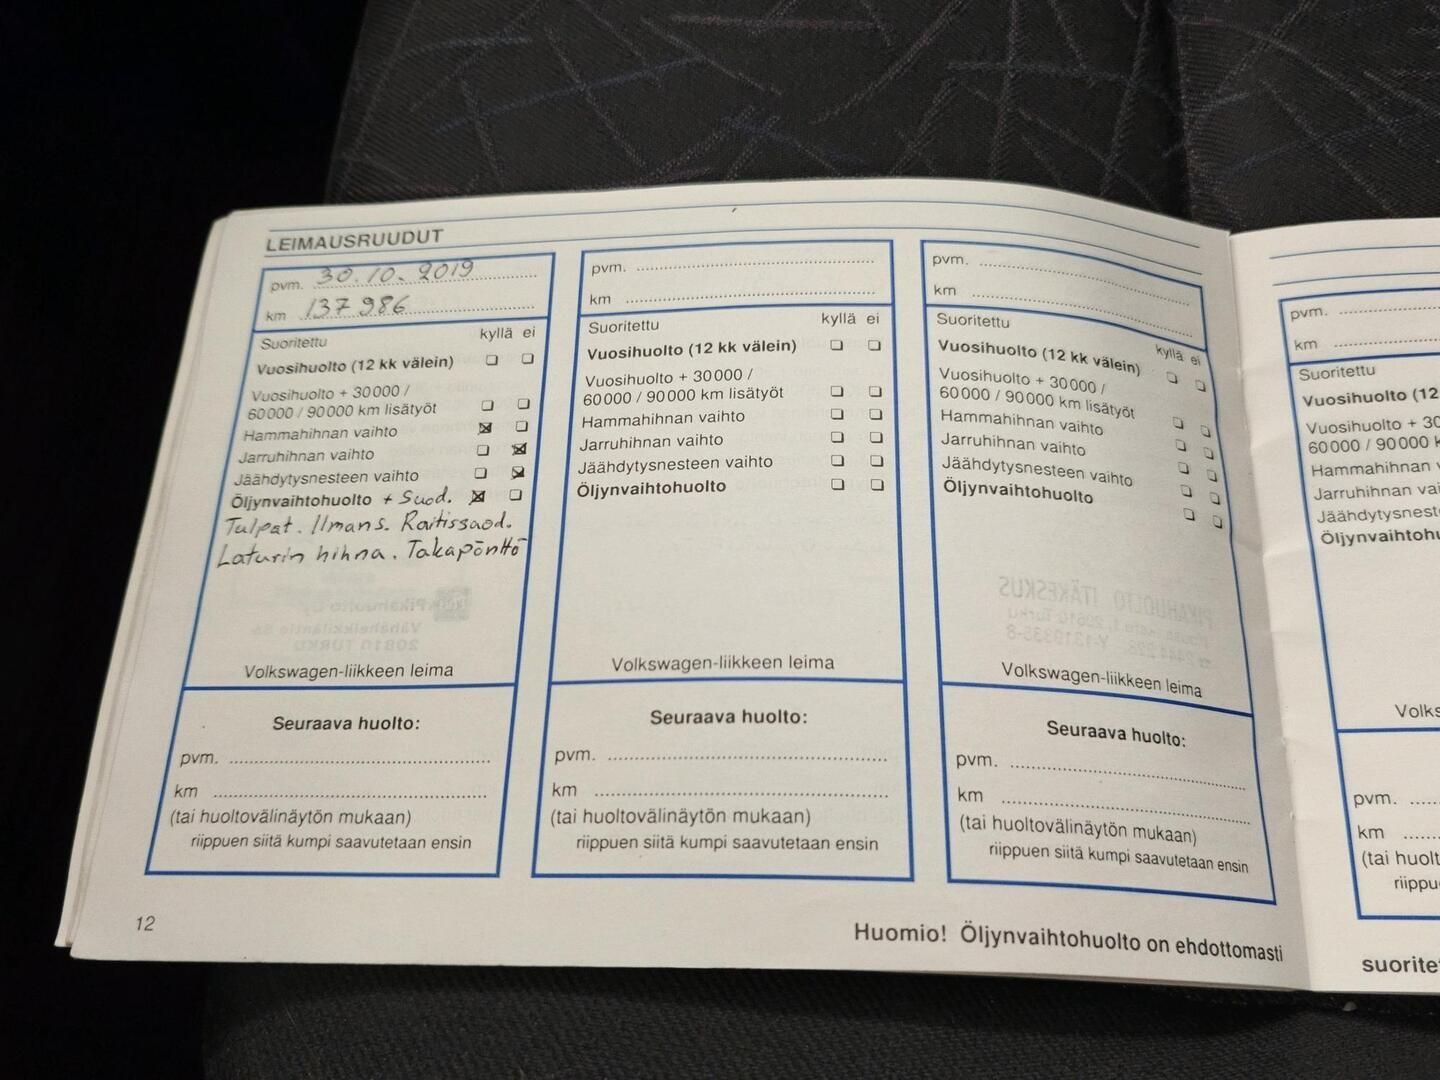 LEIMAUSRUUDUT
pvm. 30.10.2019
km 137 986
Suoritettu kyllä ei
Vuosihuolto (12 kk välein)
Vuosihuolto + 30 000 /
60 000 / 90 000 km lisätyöt
Hammahihnan vaihto
Jarruhihnan vaihto
Jäähdytysnesteen vaihto
Öljynvaihtohuolto + Suod.
Tulpat. Ilmans. Raitissuod.
Laturin hihna. Takapönttö
Volkswagen-liikkeen leima
Seuraava huolto:
pvm.
km
(tai huoltovälinäytön mukaan)
riippuen siitä kumpi saavutetaan ensin
pvm.
km
Suoritettu kyllä ei
Vuosihuolto (12 kk välein)
Vuosihuolto + 30 000 /
60 000 / 90 000 km lisätyöt
Hammahihnan vaihto
Jarruhihnan vaihto
Jäähdytysnesteen vaihto
Öljynvaihtohuolto
Volkswagen-liikkeen leima
Seuraava huolto:
pvm.
km
(tai huoltovälinäytön mukaan)
riippuen siitä kumpi saavutetaan ensin
pvm.
km
Suoritettu kyllä ei
Vuosihuolto (12 kk välein)
Vuosihuolto + 30 000 /
60 000 / 90 000 km lisätyöt
Hammahihnan vaihto
Jarruhihnan vaihto
Jäähdytysnesteen vaihto
Öljynvaihtohuolto
Volkswagen-liikkeen leima
Seuraava huolto:
pvm.
km
(tai huoltovälinäytön mukaan)
riippuen siitä kumpi saavutetaan ensin
12
Huomio! Öljynvaihtohuolto on ehdottomasti
pvm.
km
Suoritettu
Vuosihuolto (12
Vuosihuolto + 30
60 000 / 90 000 k
Hammahihnan v
Jarruhihnan vai
Jäähdytysnest
Öljynvaihtohu
Volks
pvm.
km
(tai huolt
riippu
suoritet